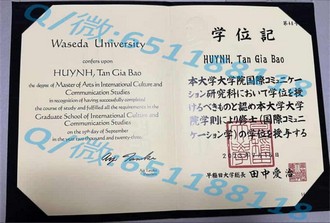 Waseda University
confers upon
HUYNH, Tan Gia Bao
the degree of Master of Arts in International Culture and
Communication Studies
in recognition of having successfully completed
the course of study and fulfilled all the requirements in the
Graduate School of International Culture and
Communication Studies
on the 15th of September
in the year two thousand and twenty-three
学位記
HUYNH, Tan Gia Bao
本大学大学院国際コミュニケー
ション研究科において学位を授
けるべきものと認め本大学大学
院学則により修士（国際コミュ
ニケーション学）の学位を授与する
早稲田大学総長 田中愛治
Q/微:651188118
Q/微:651188118